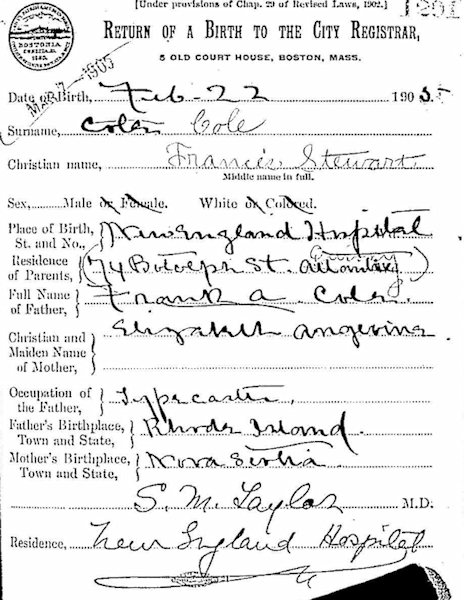 [Under provisions of Chap. 29 of Revised Laws, 1902.]
BOSTONIA
RETURN OF A BIRTH TO THE CITY REGISTRAR,
5 OLD COURT HOUSE, BOSTON, MASS.
1905
Date of Birth, Feb. 22 1905
Surname, Coles Cole
Christian name, Francis Stewart
Middle name in full.
Sex, Male or Female. White or Colored.
Place of Birth, St. and No., New England Hospital
Residence of Parents, 74 Botolph St.
Full Name of Father, Frank A. Coles.
Christian and Maiden Name of Mother, Elizabeth Angevine
Occupation of the Father, Typecaster.
Father's Birthplace, Town and State, Rhode Island.
Mother's Birthplace, Town and State, Nova Scotia.
S. M. Taylor M.D.
Residence, New England Hospital